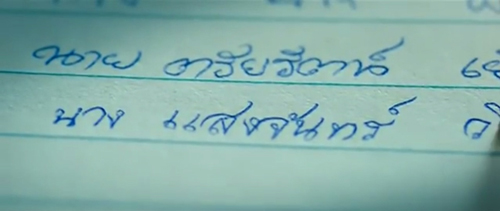 นาย ตรัยรัตน์
นาง แสงจันทร์ ว